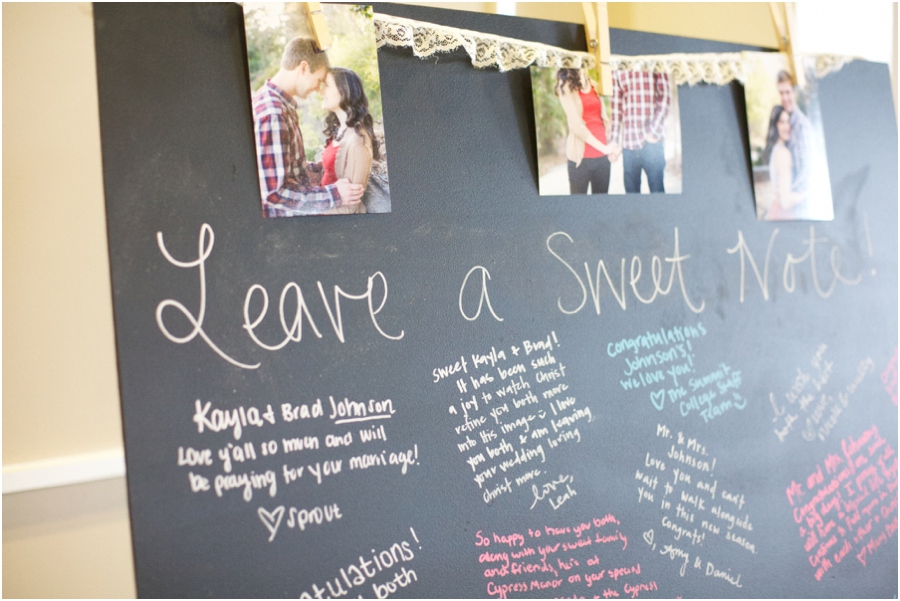 Leave a Sweet Note!
Kayla & Brad Johnson
Love y'all so much and will
be praying for your marriage!
♡ sprout
Sweet Kayla & Brad!
It has been such
a joy to watch Christ
refine you both more
into His image :) I love
you both, & am leaving
your wedding loving
Christ more.
love,
Leah
Congratulations
Johnson's!
We love you!
♡ The Summit
College Staff
Team :)
Mr. & Mrs.
Johnson!
Love you and can't
wait to walk alongside
you in this new season.
Congrats!
♡, Amy & Daniel
I wish you
both the best
So happy to have you both,
along with your sweet family
and friends, here at
Cypress Manor on your special
the Cypress
Mr. and Mrs.
Congratulations!
both